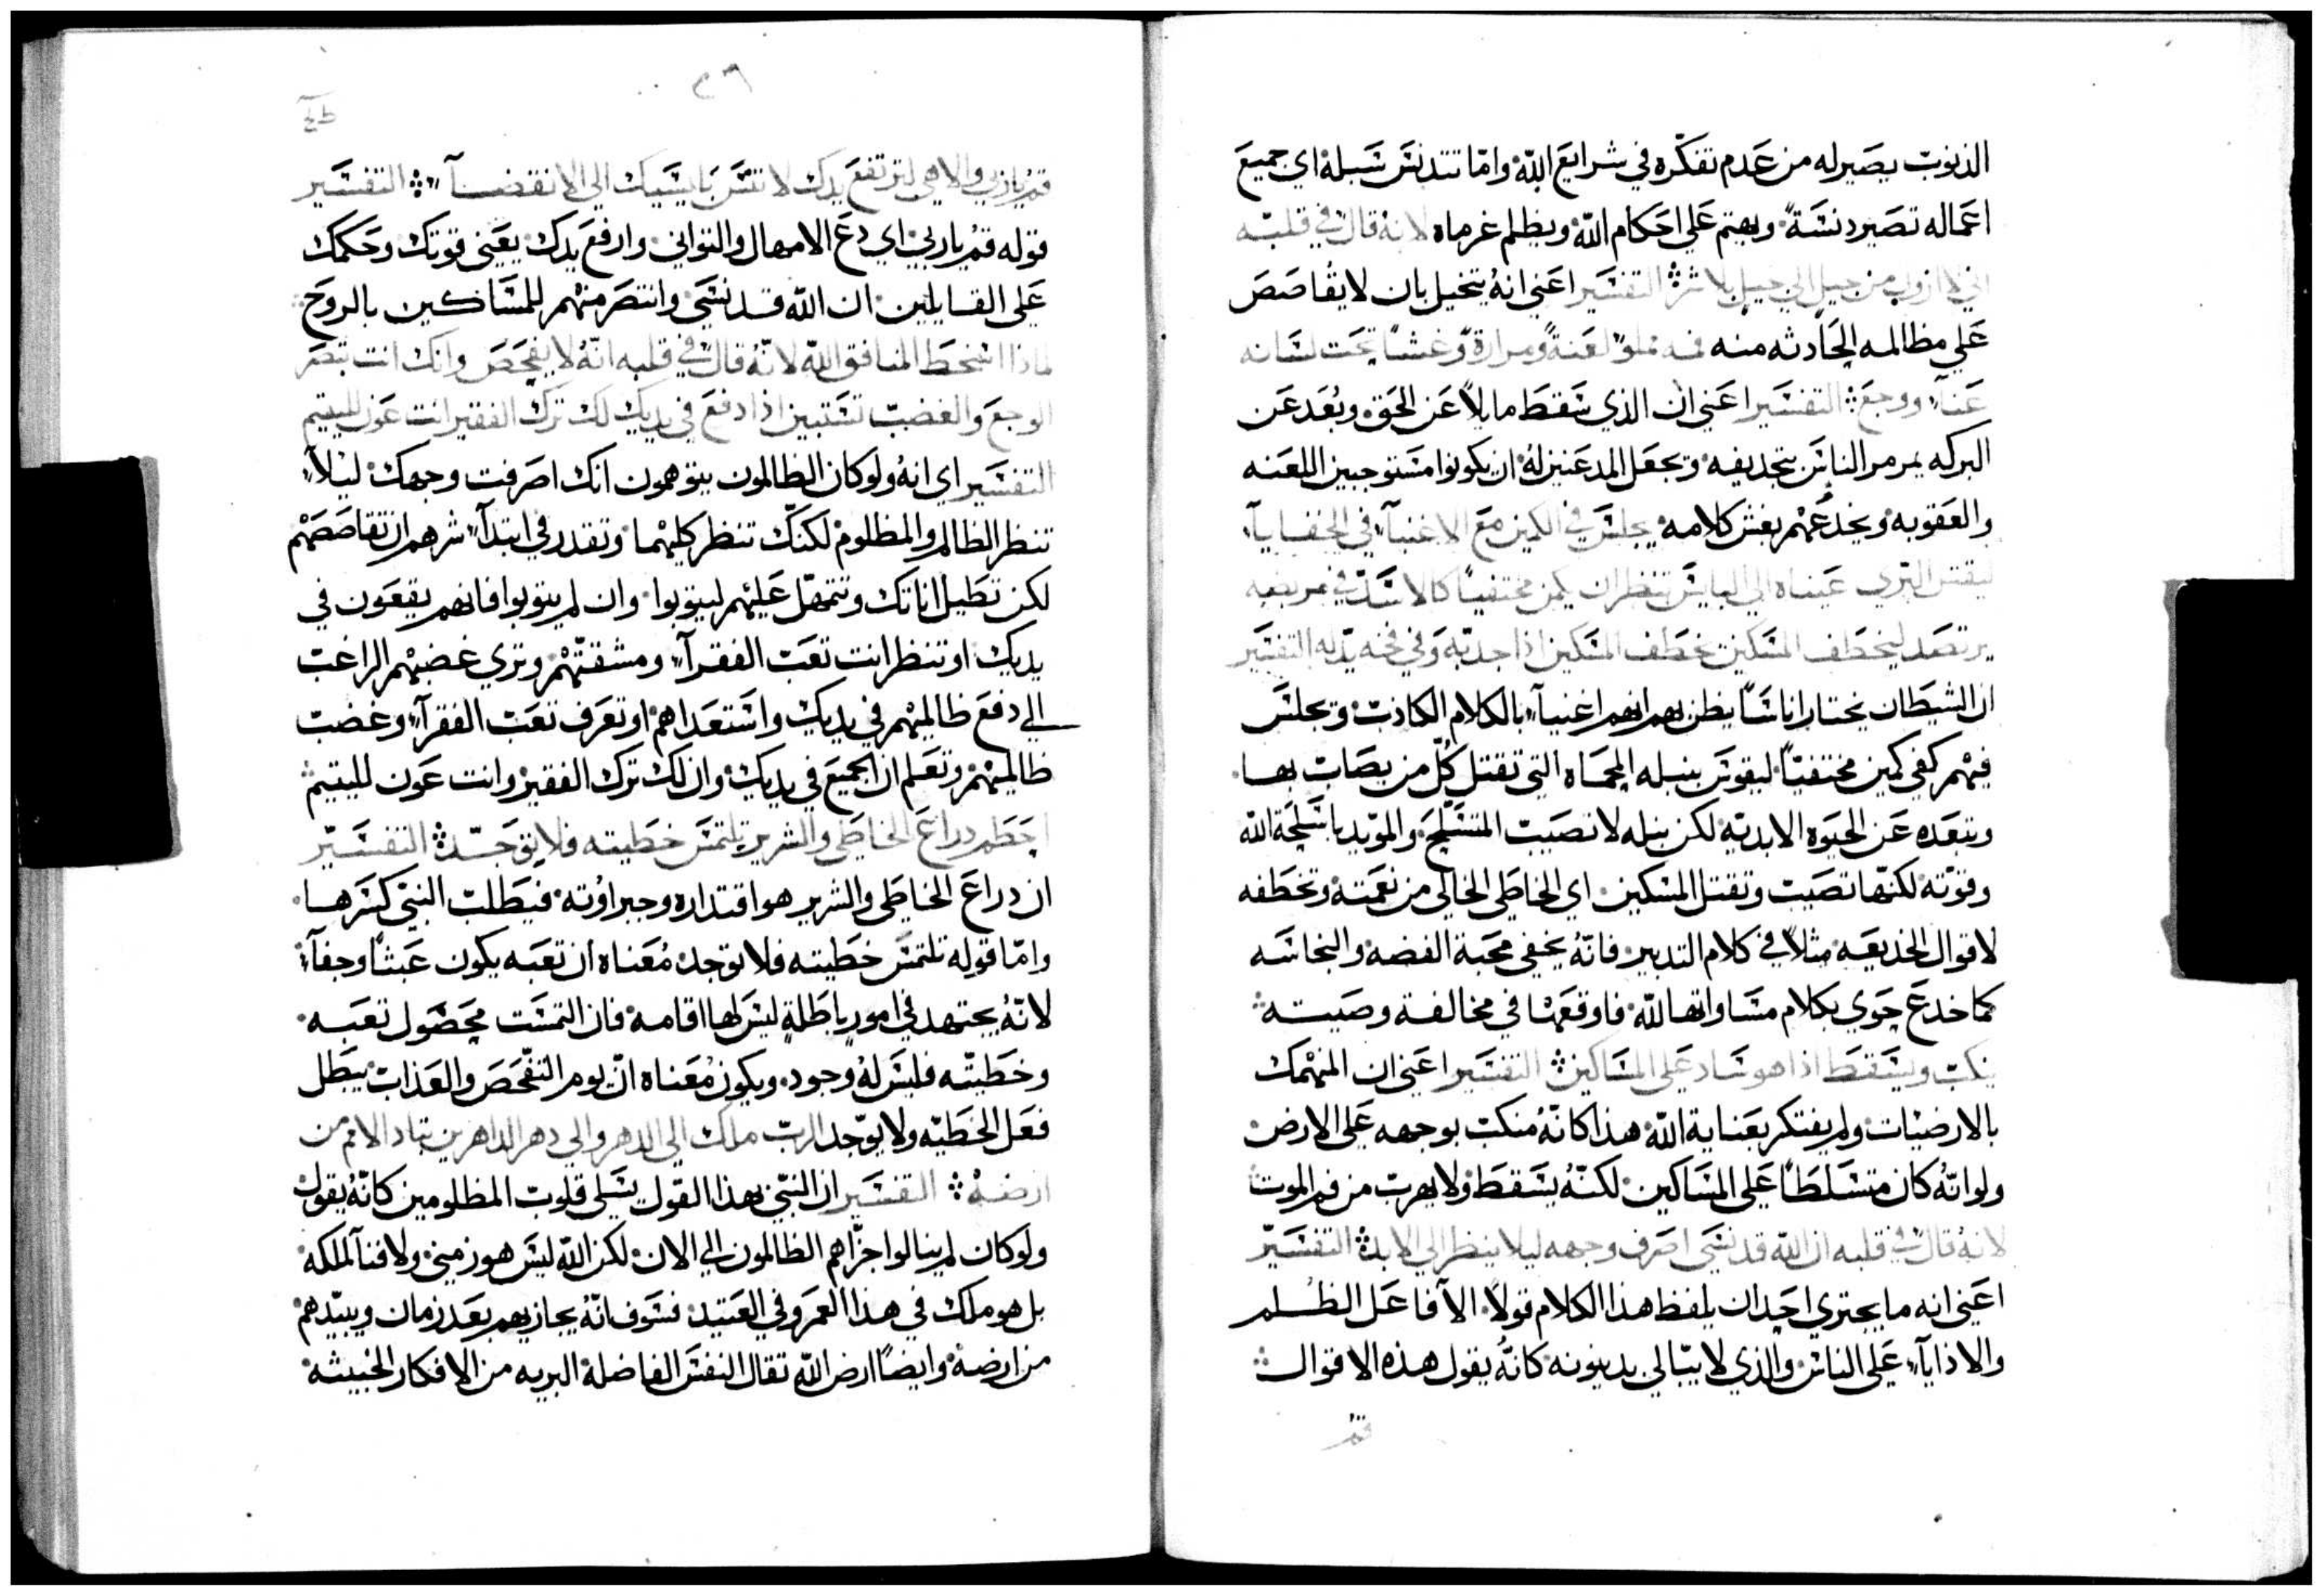 الذنوب يصير له من عدم تفكّره في شرايع الله واما تتدنس سبله اي جميع
اعماله تصير دنسةً ويهتم على احكام الله ويظلم غرماه لانه قال في قلبه
اني لا ازول من جيل الى جيل بلا شرٍ التفسير اعني انهُ يتخيل بان لا يقاصص
علي مظالمه الحادثه منه فمه مملوّ لعنةً ومرارةً وغشاً تحت لسانه
عناً ووجع التفسير اعني ان الذي سقط مايلاً عن الحق وبُعد عن
البركه يمرمر الناس بتجديفه ويجعل المدعنيز لهُ ان يكونوا مستوجبين اللعنه
والعقوبه ويخدعُهم بغش كلامه يجلس في الكمين مع الاغنياء في الخفايا
ليقتل البري عيناه الى البايس تنظران يكمن مختفياً كالاسد في مربضه
يرتصد ليخطف المسكين يخطف المسكين اذا جدبه وفي فخه يذله التفسير
ان الشيطان يختار اناساً يظن بهم انهم اغنياء بالكلام الكادب ويجلس
فيهم كفي كمين مختفياً ليقوس بنبله المحماه التي تقتل كلّ من يصاب بها
ويبعده عن الحيوه الابديه لكن نبله لا تصيب المتسلح والمويد باسلحة الله
وقوته لكنها تصيب وتقتل المسكين اي الخاطي الخالي من نعمته وتخطفه
لاقوال الخديعه مثلاً في كلام التدبير فانهُ يخفي محبة الفضه والنجاسه
كما خدع حوي بكلام مساواتها لله فاوقعها في مخالفة وصيته
ينكب ويسقط اذا هو ساد على المساكين التفسير اعني ان المنهمك
بالارضيات ولم يفتكر بعناية الله هذا كانهُ منكب بوجهه على الارض
ولو انهُ كان متسلطاً على المساكين لكنهُ يسقط ولا يهرب من فم الموت
لانهُ قال في قلبه ان الله قد نسي اصرف وجهه ليلا ينظر الى الابد التفسير
اعني انه ما يجتري احد ان يلفظ هذا الكلام قولاً الا فاعل الظلم
والاذاياء على الناس والذي لا يبالي بدينونه كانهُ يقول هذه الاقوال
قم
٢٦
قم يا ربي والاهي لترتفع يدك لا تنس بايسيك الى الانقضاء التفسير
قوله قم يا ربي اي دع الامهال والتواني وارفع يدك يعني قوتك وحكمك
على القايلين ان الله قد نسي وانتصر منهم للمساكين بالروح
لماذا اسخط المنافق الله لانهُ قال في قلبه انهُ لا يفحص وانك انت تبصر
الوجع والغضب تستبين اذا دفع في يديك لك ترك الفقير انت عون لليتيم
التفسير اي انهُ ولو كان الظالمون يتوهمون انك اصرفت وجهك ليلاً
تنظر الظالم والمظلوم لكنك تنظر كليهما وتقدر في ابتداء شرهم ان تقاصصهم
لكن تطيل اناتك وتتمهل عليهم ليتوبوا وان لم يتوبوا فانهم يقعون في
يديك او تنظر انت تعب الفقراء ومشقتهم وتري غضبهم الراغب
الى دفع ظالميهم في يديك واستعداهم او تعرف تعب الفقراء وغضب
ظالميهم وتعلم ان الجميع في يديك وان لك ترك الفقير وانت عون لليتيم
احطم دراع الخاطي والشرير تلتمس خطيته فلا توجد التفسير
ان دراع الخاطي والشرير هو اقتداره وجبراوته فيطلب النبي كسرها
واما قوله تلتمس خطيته فلا توجد مُعناه ان تعبه يكون عبثاً وجفاء
لانهُ يجتهد في امور باطلة ليس لها اقامه فان التمست محصول تعبه
وخطيته فليس لهُ وجود ويكون مُعناه ان يوم التفحص والعذاب يبطل
فعل الخطيه ولا يوجد الرب ملك الى الدهر والى دهر الداهرين تباد الامم من
ارضه التفسير ان النبي بهذا القول يسلي قلوب المظلومين كانهُ يقول
ولو كان لم ينالوا جزاهم الظالمون الى الان لكن الله ليس هو زمني ولا فنا لملكه
بل هو ملك في هذا العمر وفي العتيد فسوف انهُ يجازيهم بعد زمان ويبيدهم
من ارضه وايضاً ارض الله تقال النفس الفاضلة البريه من الافكار الخبيثه